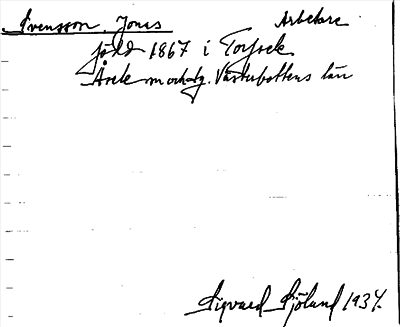 Svensson, Jonas Arbetare
född 1867 i Torsvik
Åsele m och lg. Västerbottens län
Sigvard Sjölund 1934.